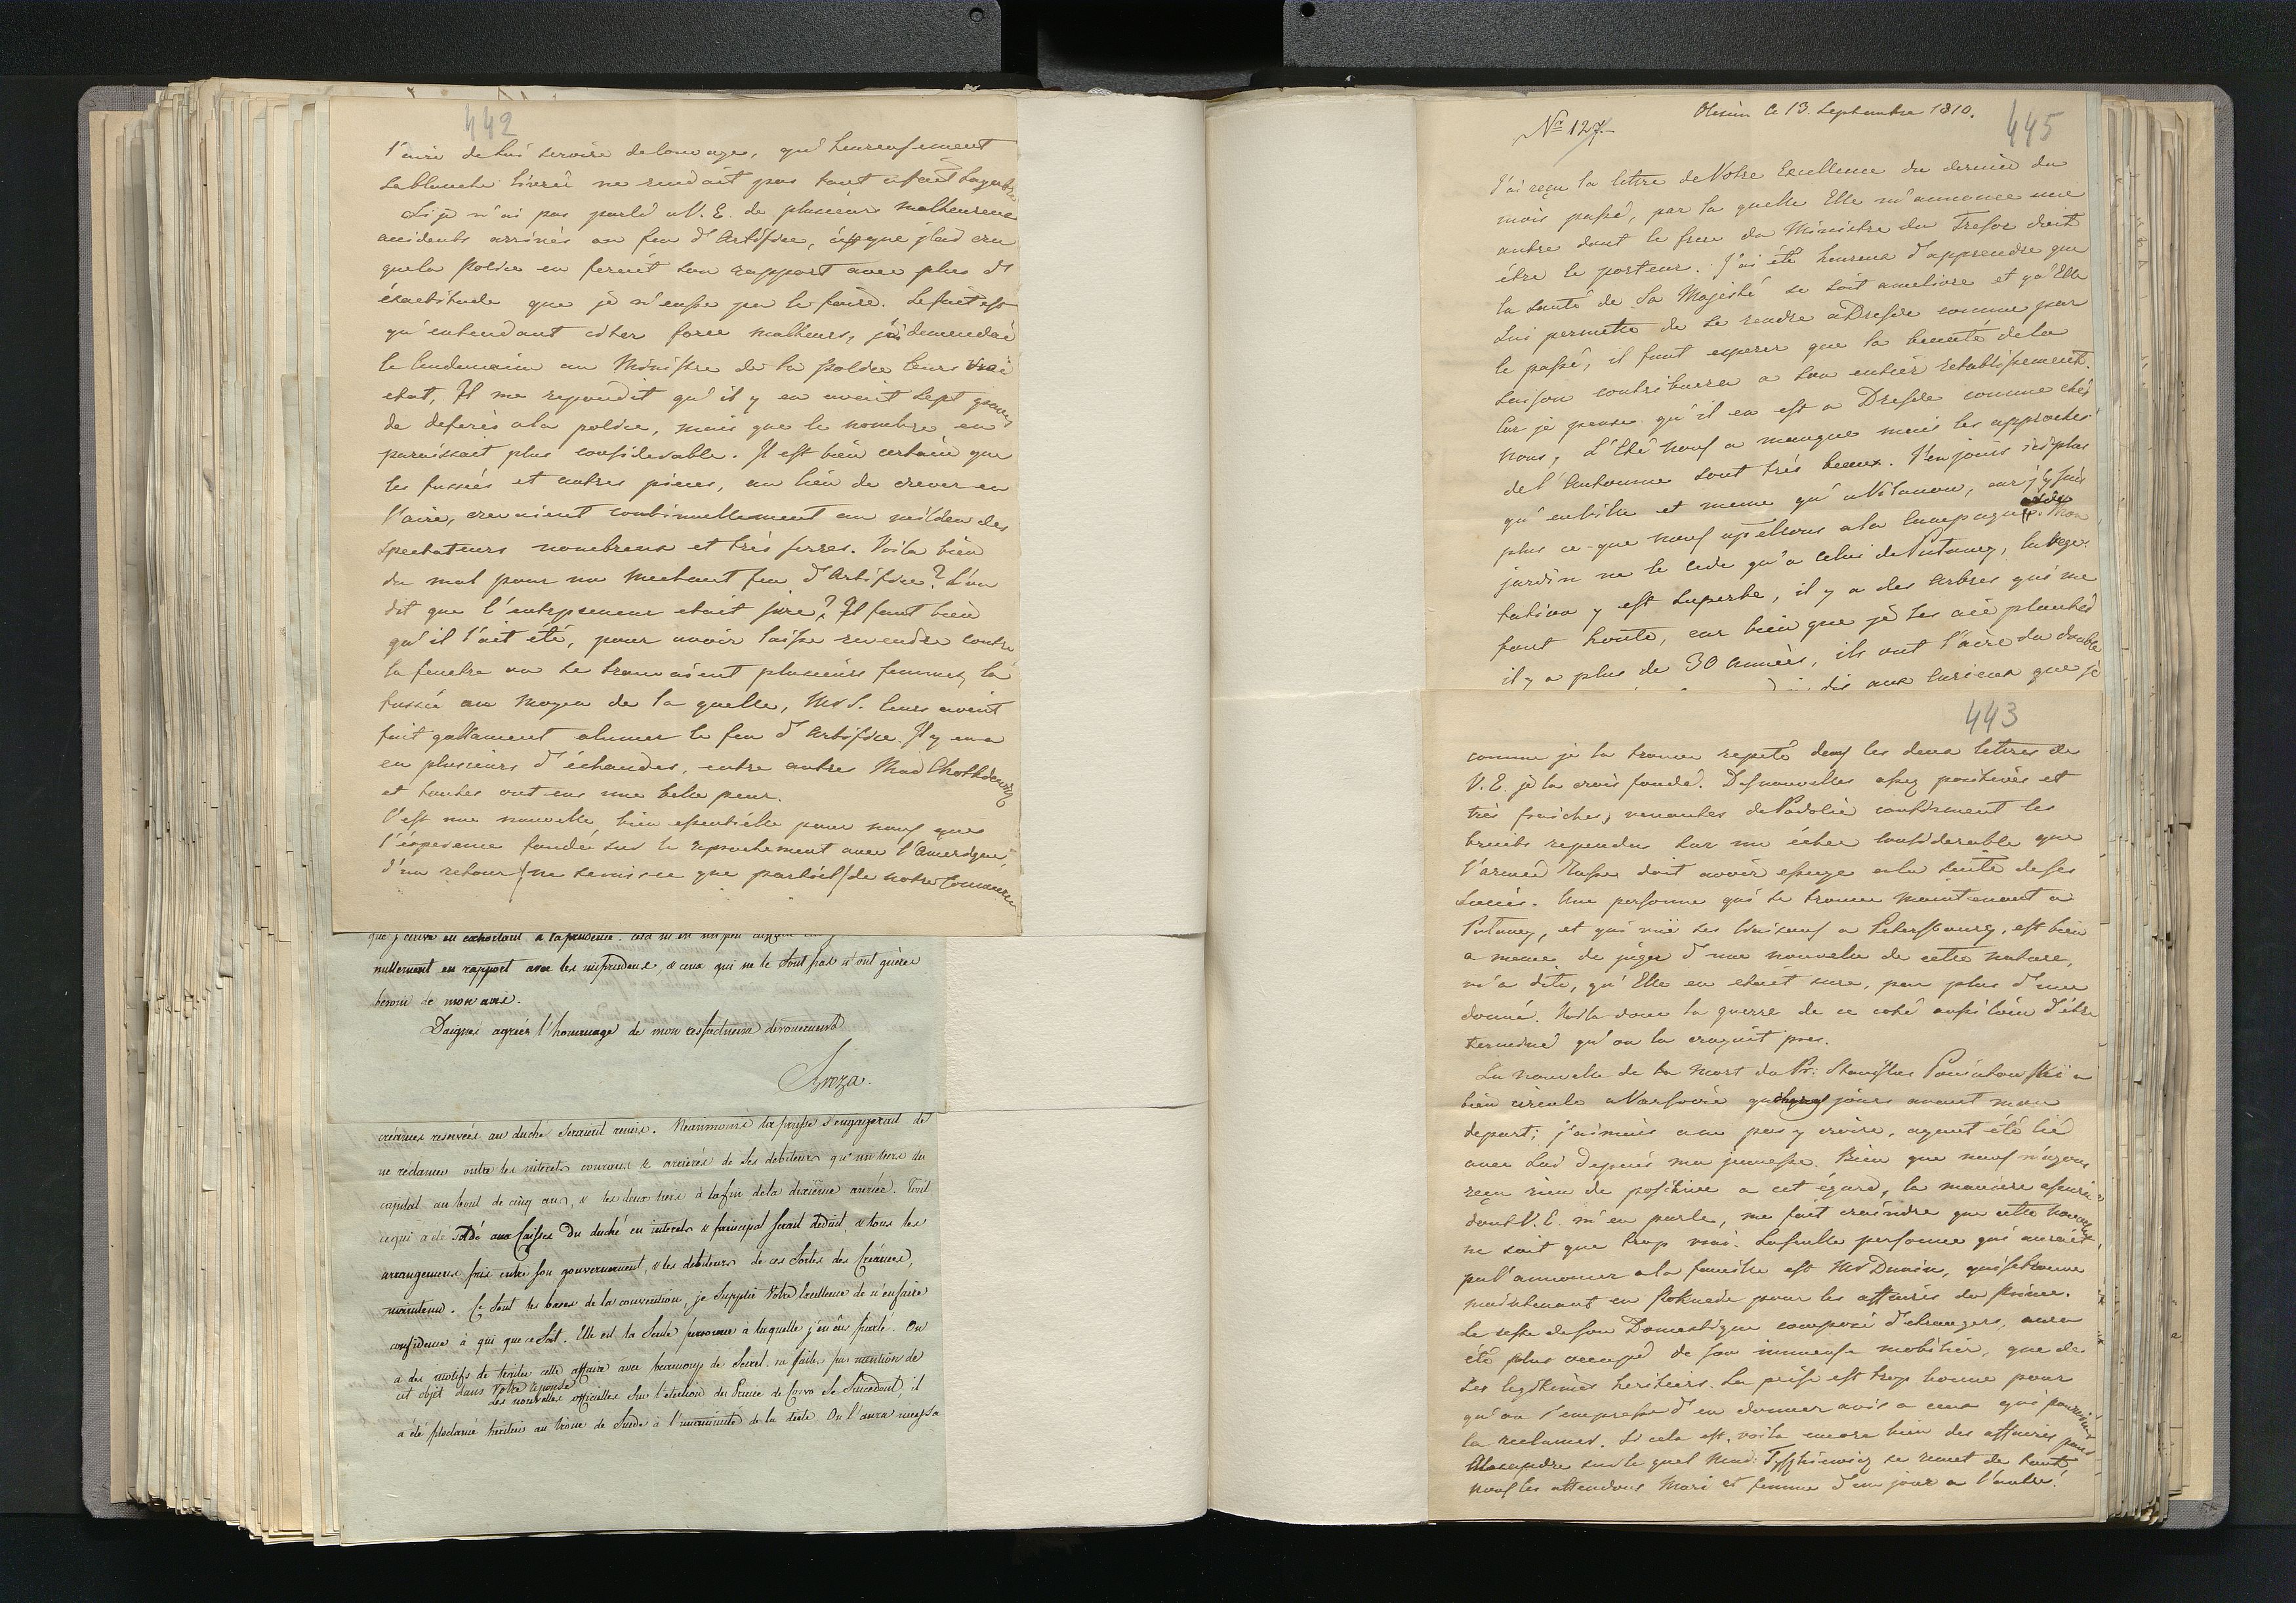 442
l'aire de lui servire de louage, qu'heureusement
la blanche livrée ne rendait pas tout a fait lugubre
Si je n'ai pas parlé a V. E. de plusieurs malheureux
accidents arrivés au feu d'Artifice, c'est que j'ai cru
que la Police en feroit son rapport avec plus d'
exactitude que je n'eusse pu le faire. Le fait est
qu'entendant citer force malheurs, j'ai demendé
le lendemain au Ministre de la police leurs vrai
etat, Il me repondit qu'il y en avoit Sept graves
de deferés a la police, mais que le nombre en
paraissait plus considerable. Il est bien certain que
les fusées et autres pièces, au lieu de crever en
l'aire, crevaient continuellement au milieu des
Spectateurs nombreux et très serrés. Voila bien
du mal pour un mechant feu d'Artifice? L'on
dit que l'entrepreneur etait ivre? Il faut bien
qu'il l'ait été, pour avoir laissé revendre contre
la fenetre ou se trouvaient plusieurs femmes, la
fussée au moyen de la quelle, Md S. leurs avoit
fait gallament alumer le feu d'Artifice. Il y en a
eu plusieurs d'échaudés, entre autre Mad
et toutes ont eus une belle peur.
C'est une nouvelle bien essentielle pour nous que
l'ésperence fondée sur le raprochement avec l'Amerique,
d'un retour (ne serais-ce que partiel) de notre Commerce
que j'ecrive en exhortant a la prudence.
nullement en rapport avec les imprudens, & ceux qui ne le Sont pas n'ont guères
besoin de mon avis.
Daignés agréer l'hommage de mon respectueux dévouement
Sroza.
créances reservées au duché seraient remis. Neanmoins la prusse s'engagerait de
ne réclamer outre les interets courans & arrierés de Ses debiteurs qu'un tiers du
capital au bout de cinq ans, & les deux tiers à la fin de la dixième année. Tout
ce qui a été soldé aux Caisses Du duché en interets & principal serait déduit, & tous les
arrangemens pris entre son gouvernement, & les debiteurs de ces Sortes des Créances,
maintenus. Ce Sont les bases de la convention, je Supplie Votre Excellence de n'en faire
confidence à qui que ce Soit. Elle est la Seule personne à laquelle j'en ai parlé. On
a des motifs de traiter cette affaire avec beaucoup de Secret. ne faites pas mention de
cet objet dans Votre reponse
Les nouvelles officielles Sur l'élection du Prince de Corvo Se Succedent, il
a été proclamé héritier au trône de Suede à l'unanimité de la diète. On l'aura
Nro 127.
Olesin le 13. Septembre 1810.
445
J'ai reçu la lettre de Votre Excellence du dernier du
mois passé, par la quelle Elle m'annonce une
autre dont le frere du Ministre du Tresor doit
être le porteur. J'ai été heureux d'apprendre que
la santé de Sa Majesté se soit ameliore et qu'Elle
Lui permette de Se rendre a Dresde comme par
le passé, il faut esperer que la beauté de la
Saison contribuera a Son entier retablissement.
Car je pense qu'il en est a Dresde comme chés
nous, L'Eté nous a manque mais les approches
de l'Automne sont très beaux. J'en jouis ici plus
qu'en ville et meme qu'a Vilanow, car j'y suis
plus ce-que nous apellons a la Campagne. Mon
jardin ne le cede qu'a celui de Pulawy, la vege-
tation y est Superbe, il y a des Arbres qui me
font honte, car bien que je les aie plantés
il y a plus de 30 années, ils ont l'aire du double
dis aux curieux que je
443
comme je la trouve repeté dans les deux lettres de
V. E. je la crois fondé. Des nouvelles assez positives et
très fraiches, venantes de Podolie confirment les
bruits rependu Sur un échec considerable que
l'armée Russe doit avoir essuye a la suite de ses
Succès. Une personne qui se trouve maintenant a
Pulawy, et qui vue ses liaisons a Petersbourg, est bien
a meme de juger d'une nouvelle de cette nature,
m'a dite, qu'Elle en etait sure, par plus d'une
donné. Voila donc la guerre de ce coté aussi loin d'être
terminé qu'on la croyait pres.
La nouvelle de la mort du Pr: Stanislas Poniatowski a
bien circulé a Varsovie quelques jours avant mon
depart; j'aimais a ne pas y croire, ayant été lié
avec Lui depuis ma jeunesse. Bien que nous n'ayons
reçu rien de positive a cet égard, la maniere
dont V. E. m'en parle, me fait craindre que cette nouvelle
ne soit que trop vrai. La seulle personne qui auroit
pu l'annoncer a la famille est Mr Dunin, qui se trouve
maintenant en pour les affaires du Prince.
Le reste de son Domestique composé d'etrangers, aura
été plus occupé de son immense mobilier, que de
Les legitimes heritiers. La prise est trop bonne pour
qu'on s'empresse d'en donner avis a ceux qui pourroient
la reclamer. Si cela est, voila encore bien des affaires pour
Alexandre sur le quel Mad: Tyszkiewicz se remet de tout
nous les attendons Mari et femme d'un jour a l'autre.